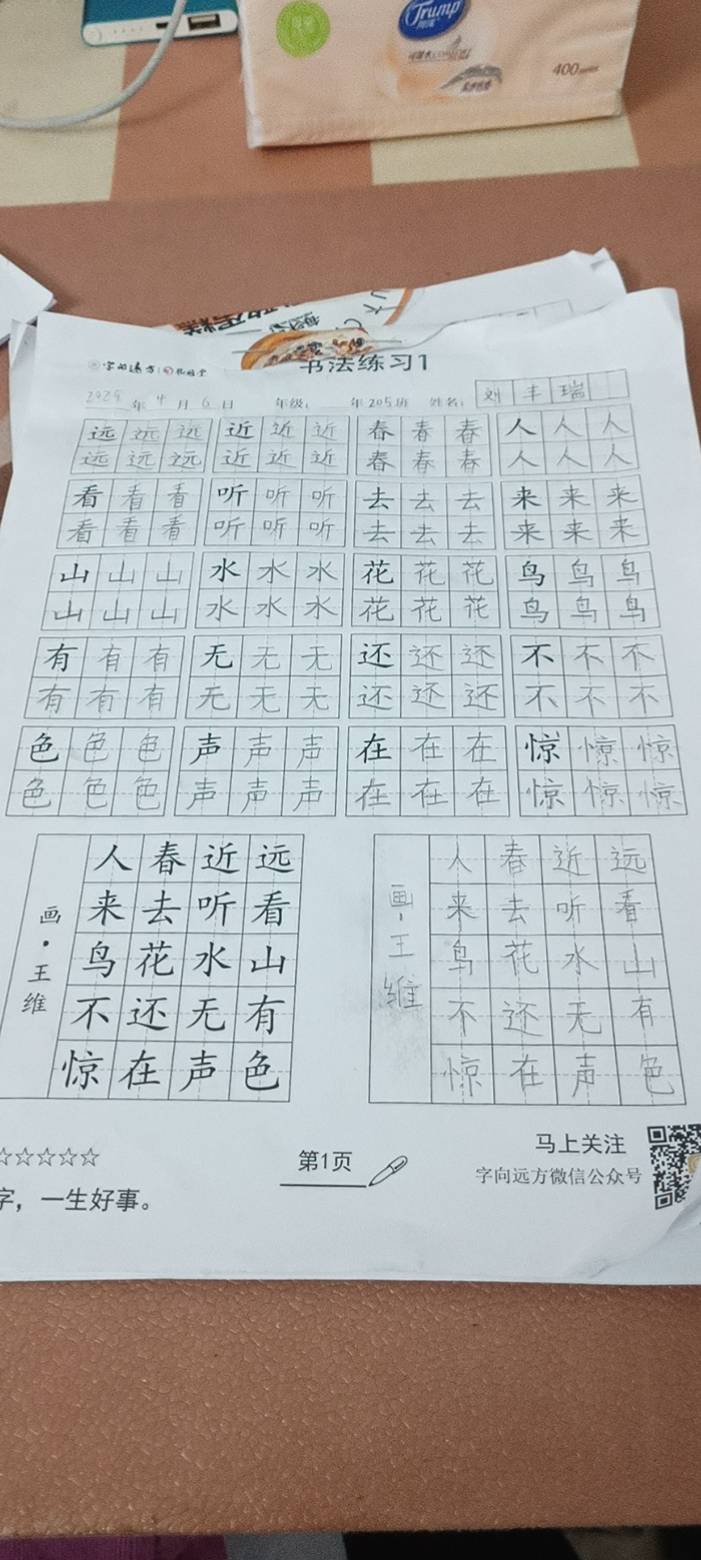 Trump
400
字向远方
书法练习1
年 4 月 6 日 年级： 年 205 班 姓名： 刘 丰 瑞
远 远 远 近 近 近 春 春 春 人 人 人
远 远 远 近 近 近 春 春 春 人 人 人
看 看 看 听 听 听 去 去 去 来 来 来
看 看 看 听 听 听 去 去 去 来 来 来
山 山 山 水 水 水 花 花 花 鸟 鸟 鸟
山 山 山 水 水 水 花 花 花 鸟 鸟 鸟
有 有 有 无 无 无 还 还 还 不 不 不
有 有 有 无 无 无 还 还 还 不 不 不
色 色 色 声 声 声 在 在 在 惊 惊 惊
色 色 色 声 声 声 在 在 在 惊 惊 惊
远看山有色
近听水无声
春去花还在
人来鸟不惊
画·王维
远看山有色
近听水无声
春去花还在
人来鸟不惊
画·王维
☆☆☆☆☆
第1页
马上关注
字向远方微信公众号
字，一生好事。